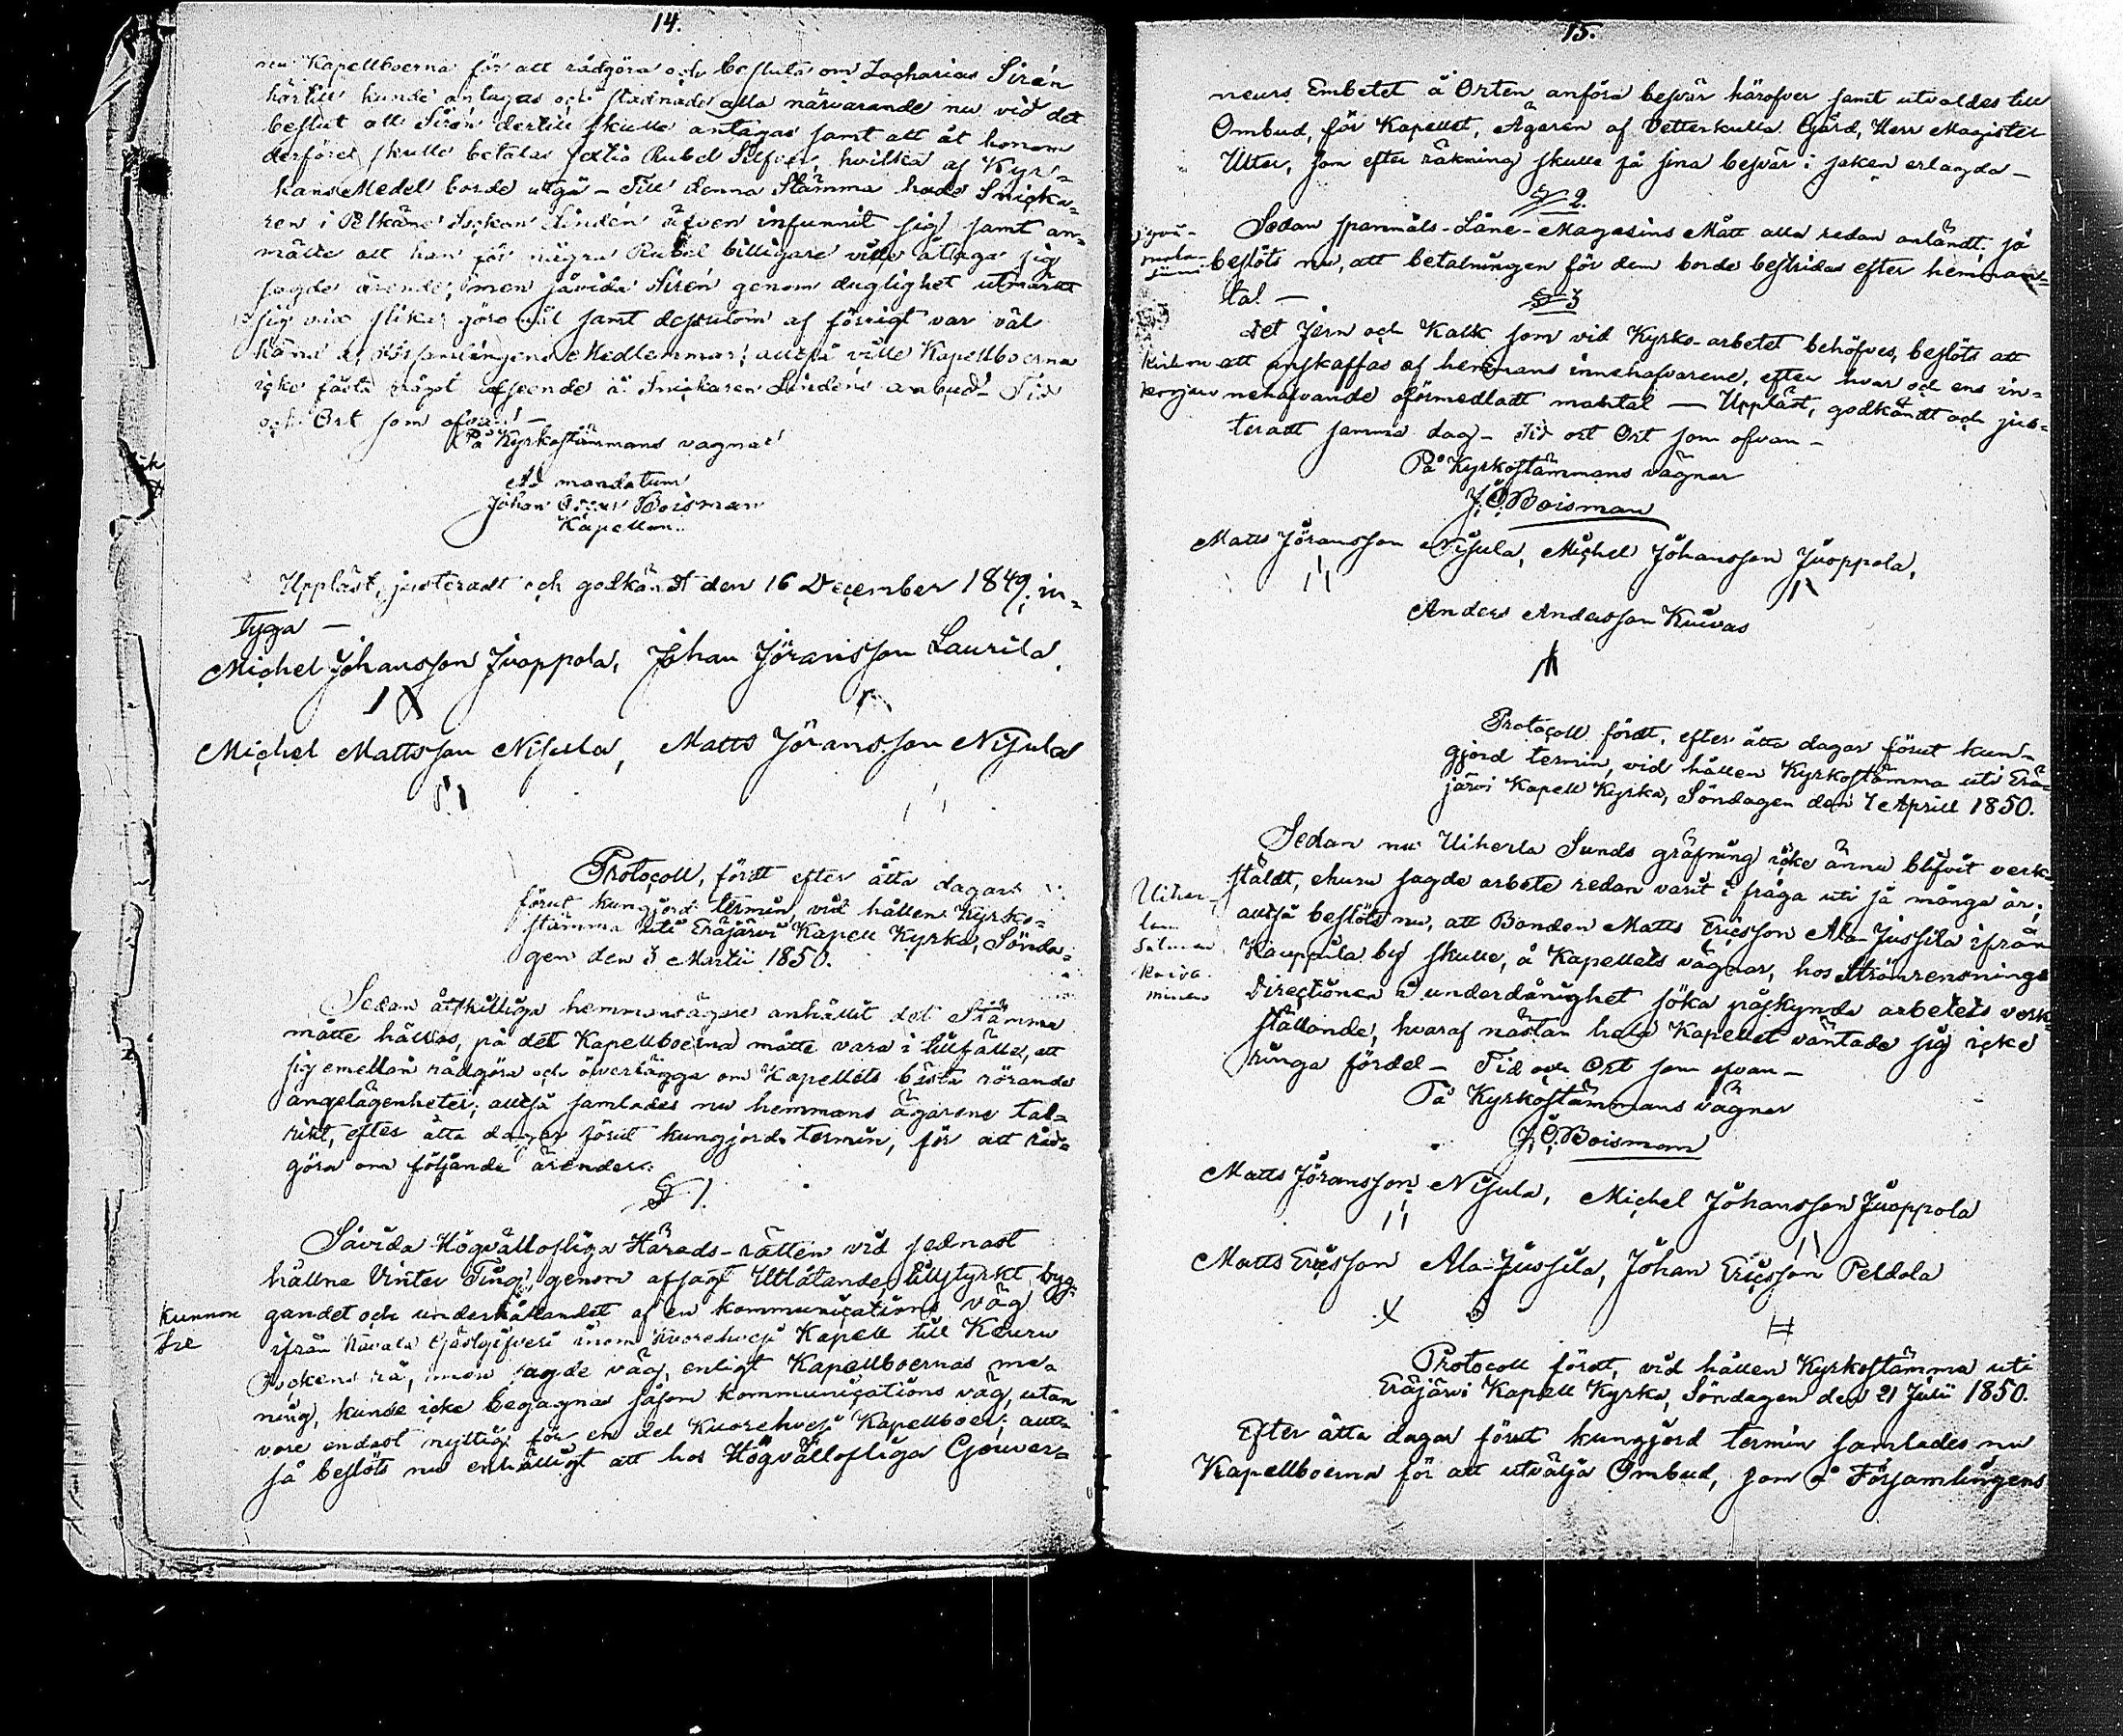 14.
nu Kapellboerna för att rådgöra och besluta om Zacharias Sirén
härtill kunde antagas och stadnade alla närvarande nu vid det
beslut att Sirén dertill skulle antagas samt att åt honom
derföre skulle betalas sextio Rubel Silfver, hvilka af Kyr-
kans Medel borde utgå – Till denna Stämma hade Snicka-
ren i Pelkäne Socken Lindén äfven infunnit sig samt an-
mälte att han för några Rubel billigare ville åtaga sig
sagde ärende; men såvida Sirén genom duglighet utmärkt
sig vid slika göromål samt dessutom af förrigt var väl
känd af Församlingens Medlemmar; alltså ville Kapellboerna
icke fästa något afseende å Snickaren Lindéns anbud – Tid
och Ort som ofvan! –
På Kyrkostämmans vägnar
Ad mandatum
Johan Oscar Boisman
Kapellan.
Uppläst, justeradt och godkändt den 16 December 1849, in-
tyga –
Michel Johansson Juoppola, Johan Jöransson Laurila,
Michel Mattsson Nisula, Matts Jöransson Nisula
Protocoll, fördt efter åtta dagars
förut kungjord termin, vid hållen Kyrko-
stämma uti Eräjärvi Kapell Kyrka, Sönda-
gen den 3 Martii 1850.
Sedan åtskilliga hemmansägare anhållit det Stämma
måtte hållas, på det Kapellboerna måtte vara i tillfälle, att
sig emellan rådgöra och öfverlägga om Kapellets bästa rörande
angelägenheter; alltså samlades nu hemmans ägarene tal-
rikt, efter åtta dagar förut kungjord termin, för att råd-
göra om följande ärender:
§ 1.
Såvida Högvällofliga Härads-rätten vid sednast
hållne Vinter Ting genom afsagt Utlåtande, tillstyrkt byg-
gandet och underhållandet af en kommunications väg
Kunnon
tie
ifrån Kavala Gästgifveri inom Kuorehvesi Kapell till Keuru
Sockens rå, men sagde väg, enligt Kapellboernas me-
ning, kunde icke begagnas såsom kommunications väg, utan
vore endast nyttig för en del Kuorehvesi Kapellboer; allt-
så beslöts nu enhälligt att hos Högvällofliga Gouver-
15.
neurs Embetet å Orten anföra besvär häröfver samt utvaldes till
Ombud, för Kapellet, Ägaren af Vetterkulla Gård, Herr Magister
Uter, som efter räkning skulle få sina besvär i saken erlagda –
§ 2.
Sedan spanmåls-Låne-Magasins Mått alla redan anländt; så
beslöts nu, att betalningen för dem borde bestridas efter hemman-
tal –
jyvä-
maka-
siini
§ 3
Det Jern och Kalk som vid Kyrko-arbetet behöfves, beslöts att
att anskaffas af hemmans innehafvarene, efter hvar och ens in-
nehafvande oförmedladt mantal – Uppläst, godkändt och jus-
teradt samma dag – Tid ort Ort som ofvan –
Kirkon
korjaus
På Kyrkostämmans vägnar
J. O. Boisman
Matts Jöransson Nisula, Michel Johansson Juoppola,
Anders Andersson Kuivas
Protocoll fördt, efter åtta dagar förut kun-
gjord termin, vid hållen Kyrkostämma uti Erä-
järvi Kapell Kyrka, Söndagen den 7 Aprill 1850.
Sedan nu Uiherla Sunds gräfning icke ännu blifvit verk-
stäldt, ehuru sagde arbete redan varit i fråga uti så många år;
alltså beslöts nu, att Bonden Matts Ericsson Ala-Jussila ifrån
Kauppila by skulle, å Kapellets vägnar, hos Strömrensnings
Directionen i underdånighet söka påskynda arbetets verk-
ställande, hvaraf nästan hela Kapellet väntade sig icke
ringa fördel – Tid och Ort som ofvan –
Uiher-
lan
Salmen
kaiva-
minen
På Kyrkostämmans vägnar
J. O. Boisman
Matts Jöransson Nisula, Michel Johansson Juoppola
Matts Ericsson Ala-Jussila, Johan Ericsson Peldola
Protocoll fördt, vid hållen Kyrkostämma uti
Eräjärvi Kapell Kyrka, Söndagen den 21 Julii 1850.
Efter åtta dagar förut kungjord termin samlades nu
Kapellboerna för att utvälja Ombud, som å Församlingens